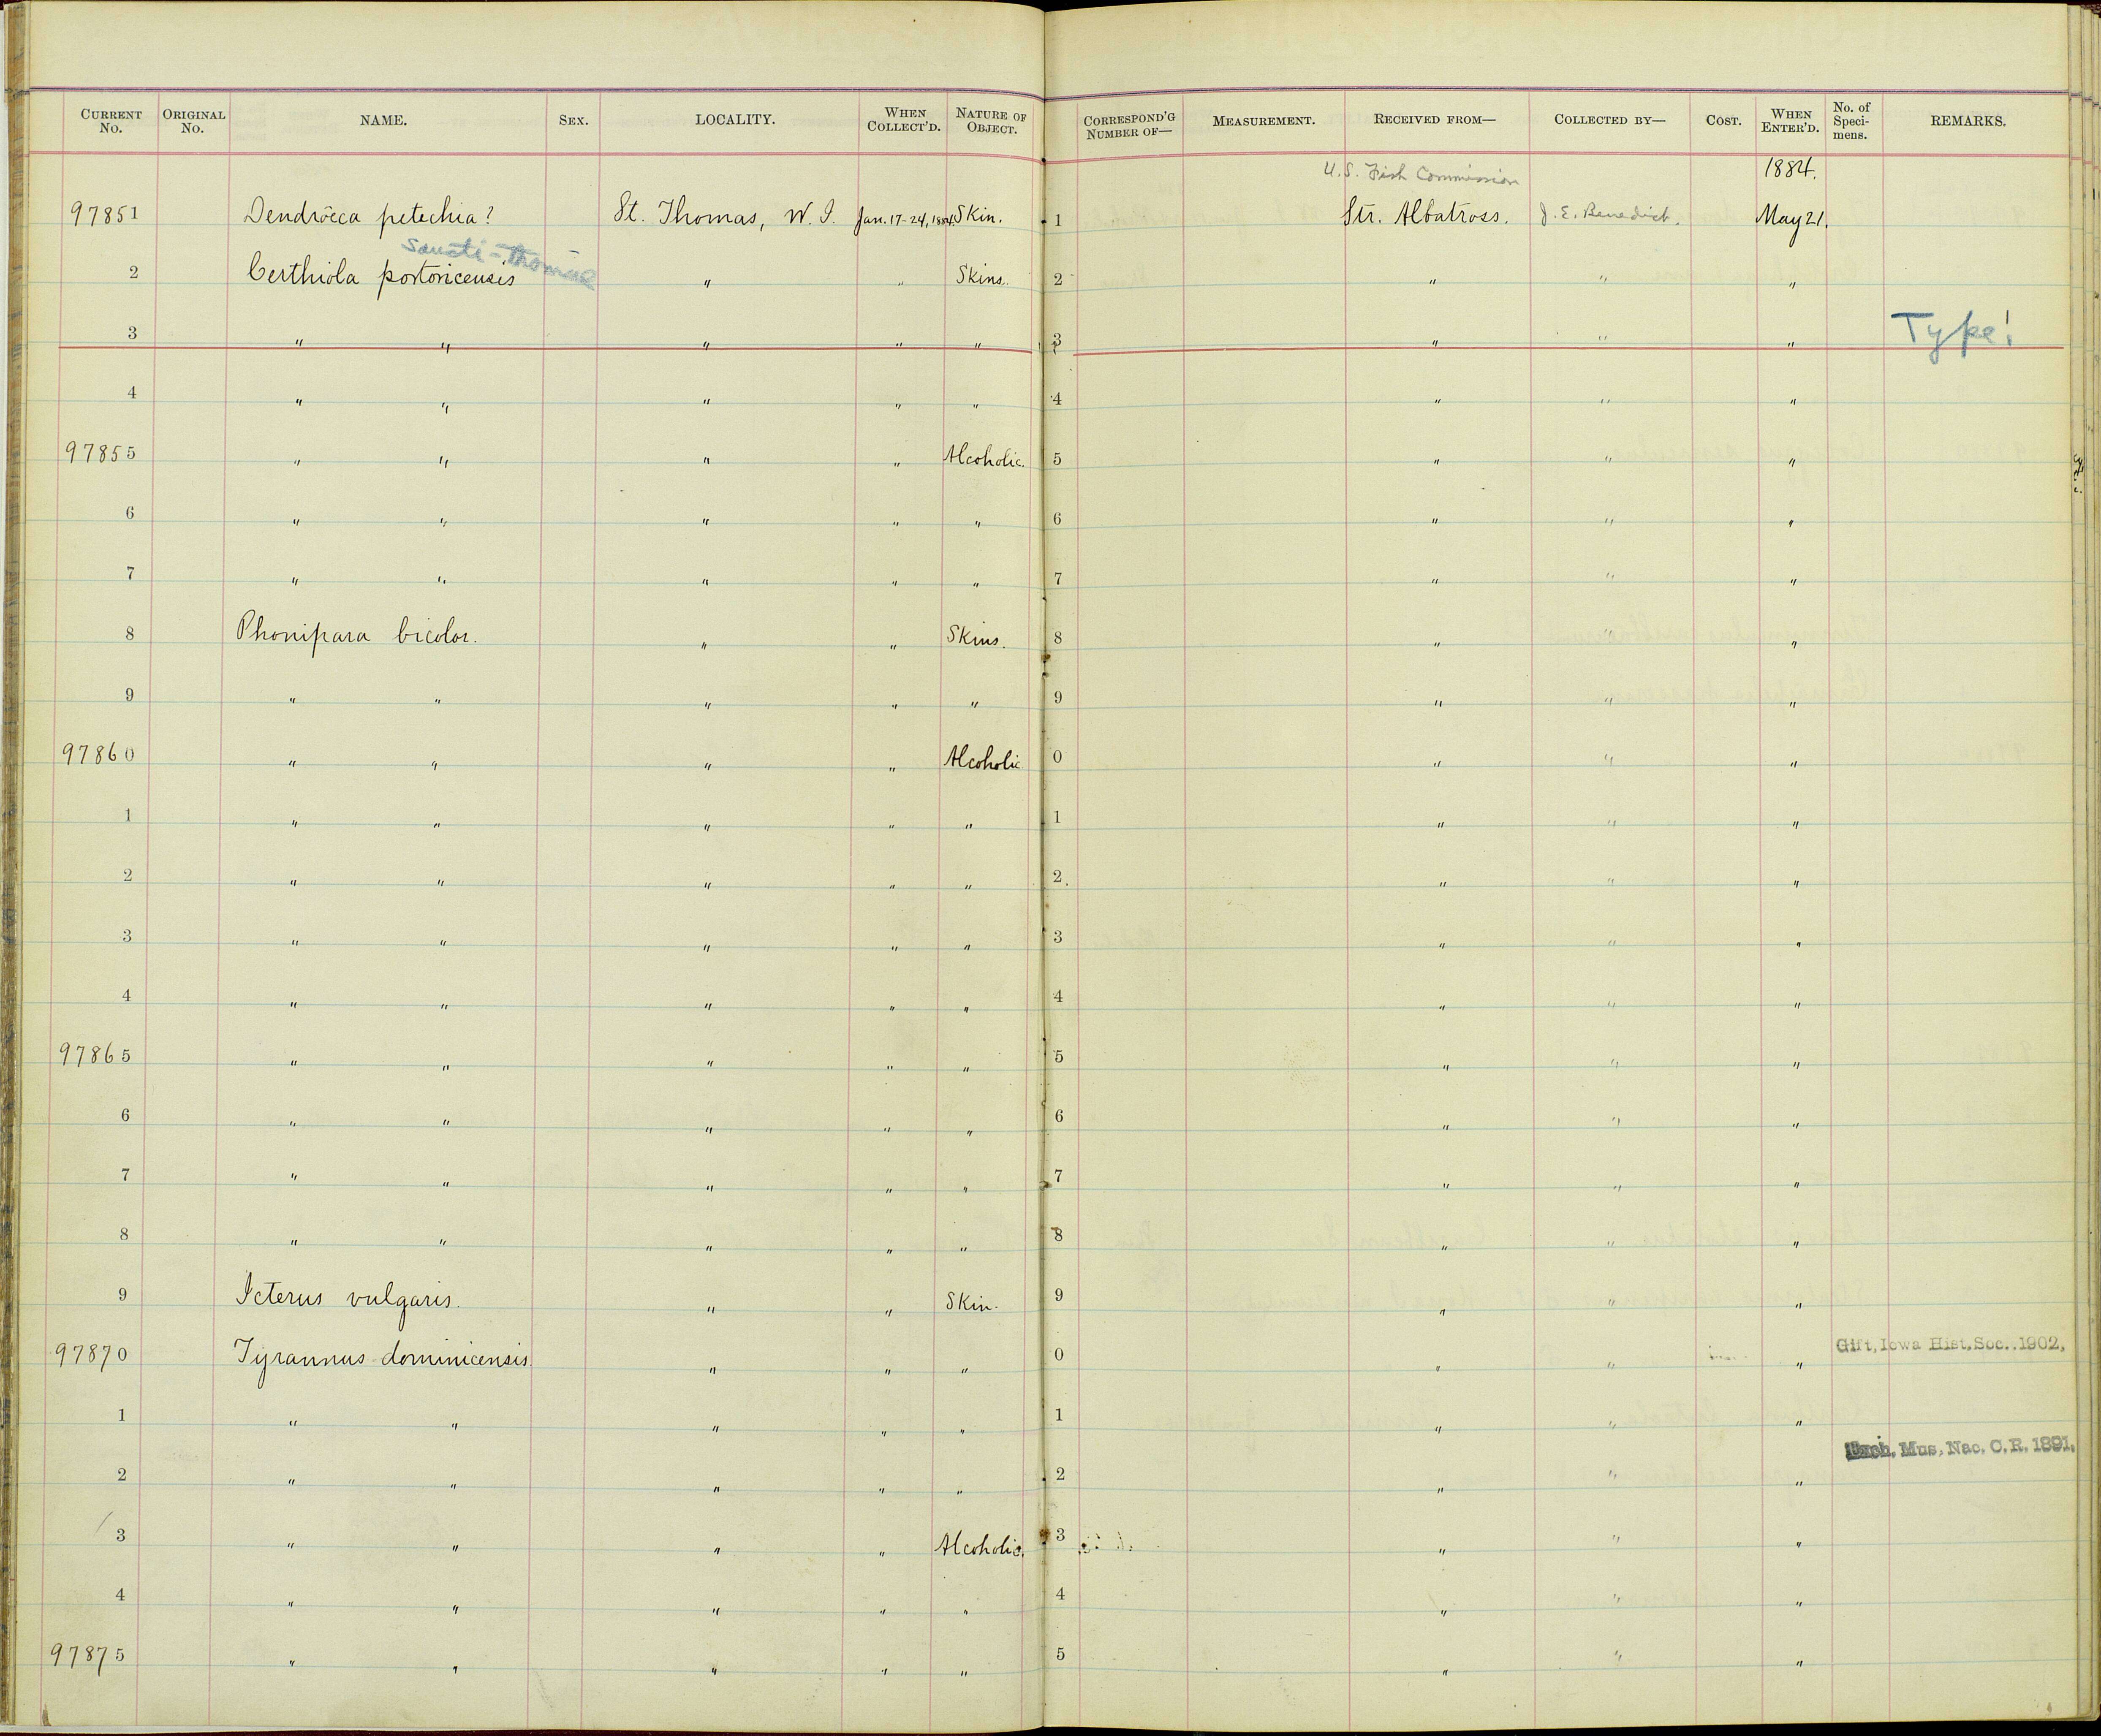 CURRENT No. ORIGINAL No. NAME. SEX. LOCALITY. WHEN COLLECT'D. NATURE OF OBJECT. CORRESPOND'G NUMBER OF— MEASUREMENT. RECEIVED FROM— COLLECTED BY— COST. WHEN ENTER'D. No. of Speci-mens. REMARKS.
U.S. Fish Commission 1884.
97851 Dendroëca petechia? St. Thomas, W. I. Jan. 17-24, 1884. Skin. 1 Str. Albatross. J. E. Benedict. May 21.
Sancti-Thomae
2 Certhiola portoricensis " " Skins. 2 " " "
3 " " " " " 3 " " " Type!
4 " " " " " 4 " " "
97855 " " " " Alcoholic. 5 " " "
6 " " " " " 6 " " "
7 " " " " " 7 " " "
8 Phonipara bicolor. " " Skins. 8 " " "
9 " " " " " 9 " " "
97860 " " " " Alcoholic 0 " " "
1 " " " " " 1 " " "
2 " " " " " 2 " " "
3 " " " " " 3 " " "
4 " " " " " 4 " " "
97865 " " " " " 5 " " "
6 " " " " " 6 " " "
7 " " " " " 7 " " "
8 " " " " " 8 " " "
9 Icterus vulgaris. " " Skin. 9 " " "
97870 Tyrannus dominicensis " " " 0 " " " Gift, Iowa Hist. Soc. 1902,
1 " " " " " 1 " " "
Exch. Mus. Nac. C. R. 1891.
2 " " " " " 2 " " "
3 " " " " Alcoholic. 3 " " "
4 " " " " " 4 " " "
97875 " " " " " 5 " " "